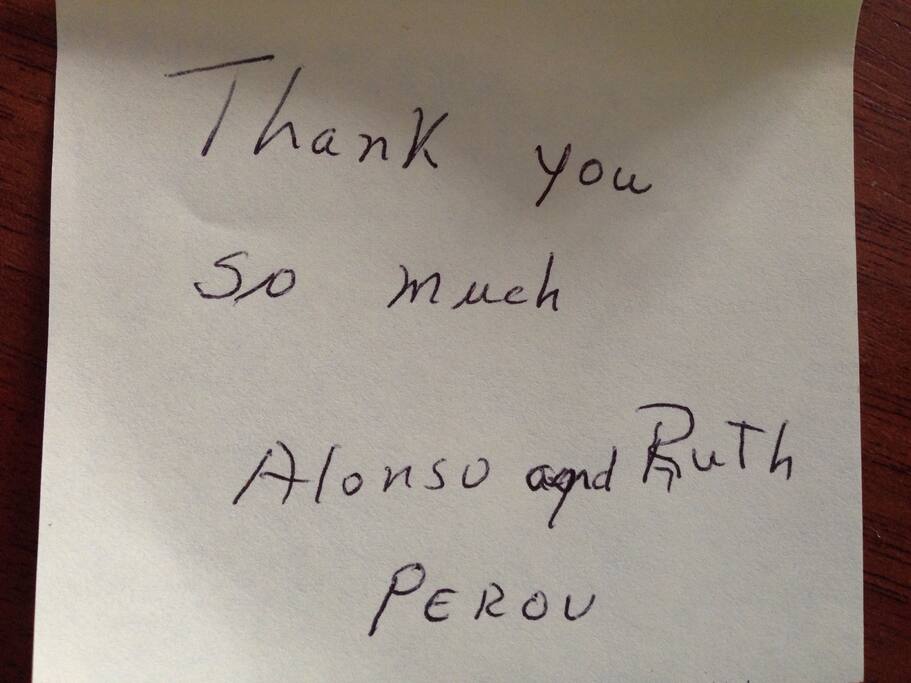 Thank you
so much
Alonso and Ruth
PEROU